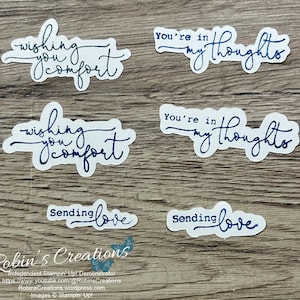 wishing
you
comfort
You're in
my thoughts
wishing
you
comfort
You're in
my thoughts
Sending
love
Sending
love
Robin's Creations
Independent Stampin' Up! Demonstrator
https://www.youtube.com/@RobinsCreations
RobinsCreations.wordpress.com
Images © Stampin' Up!